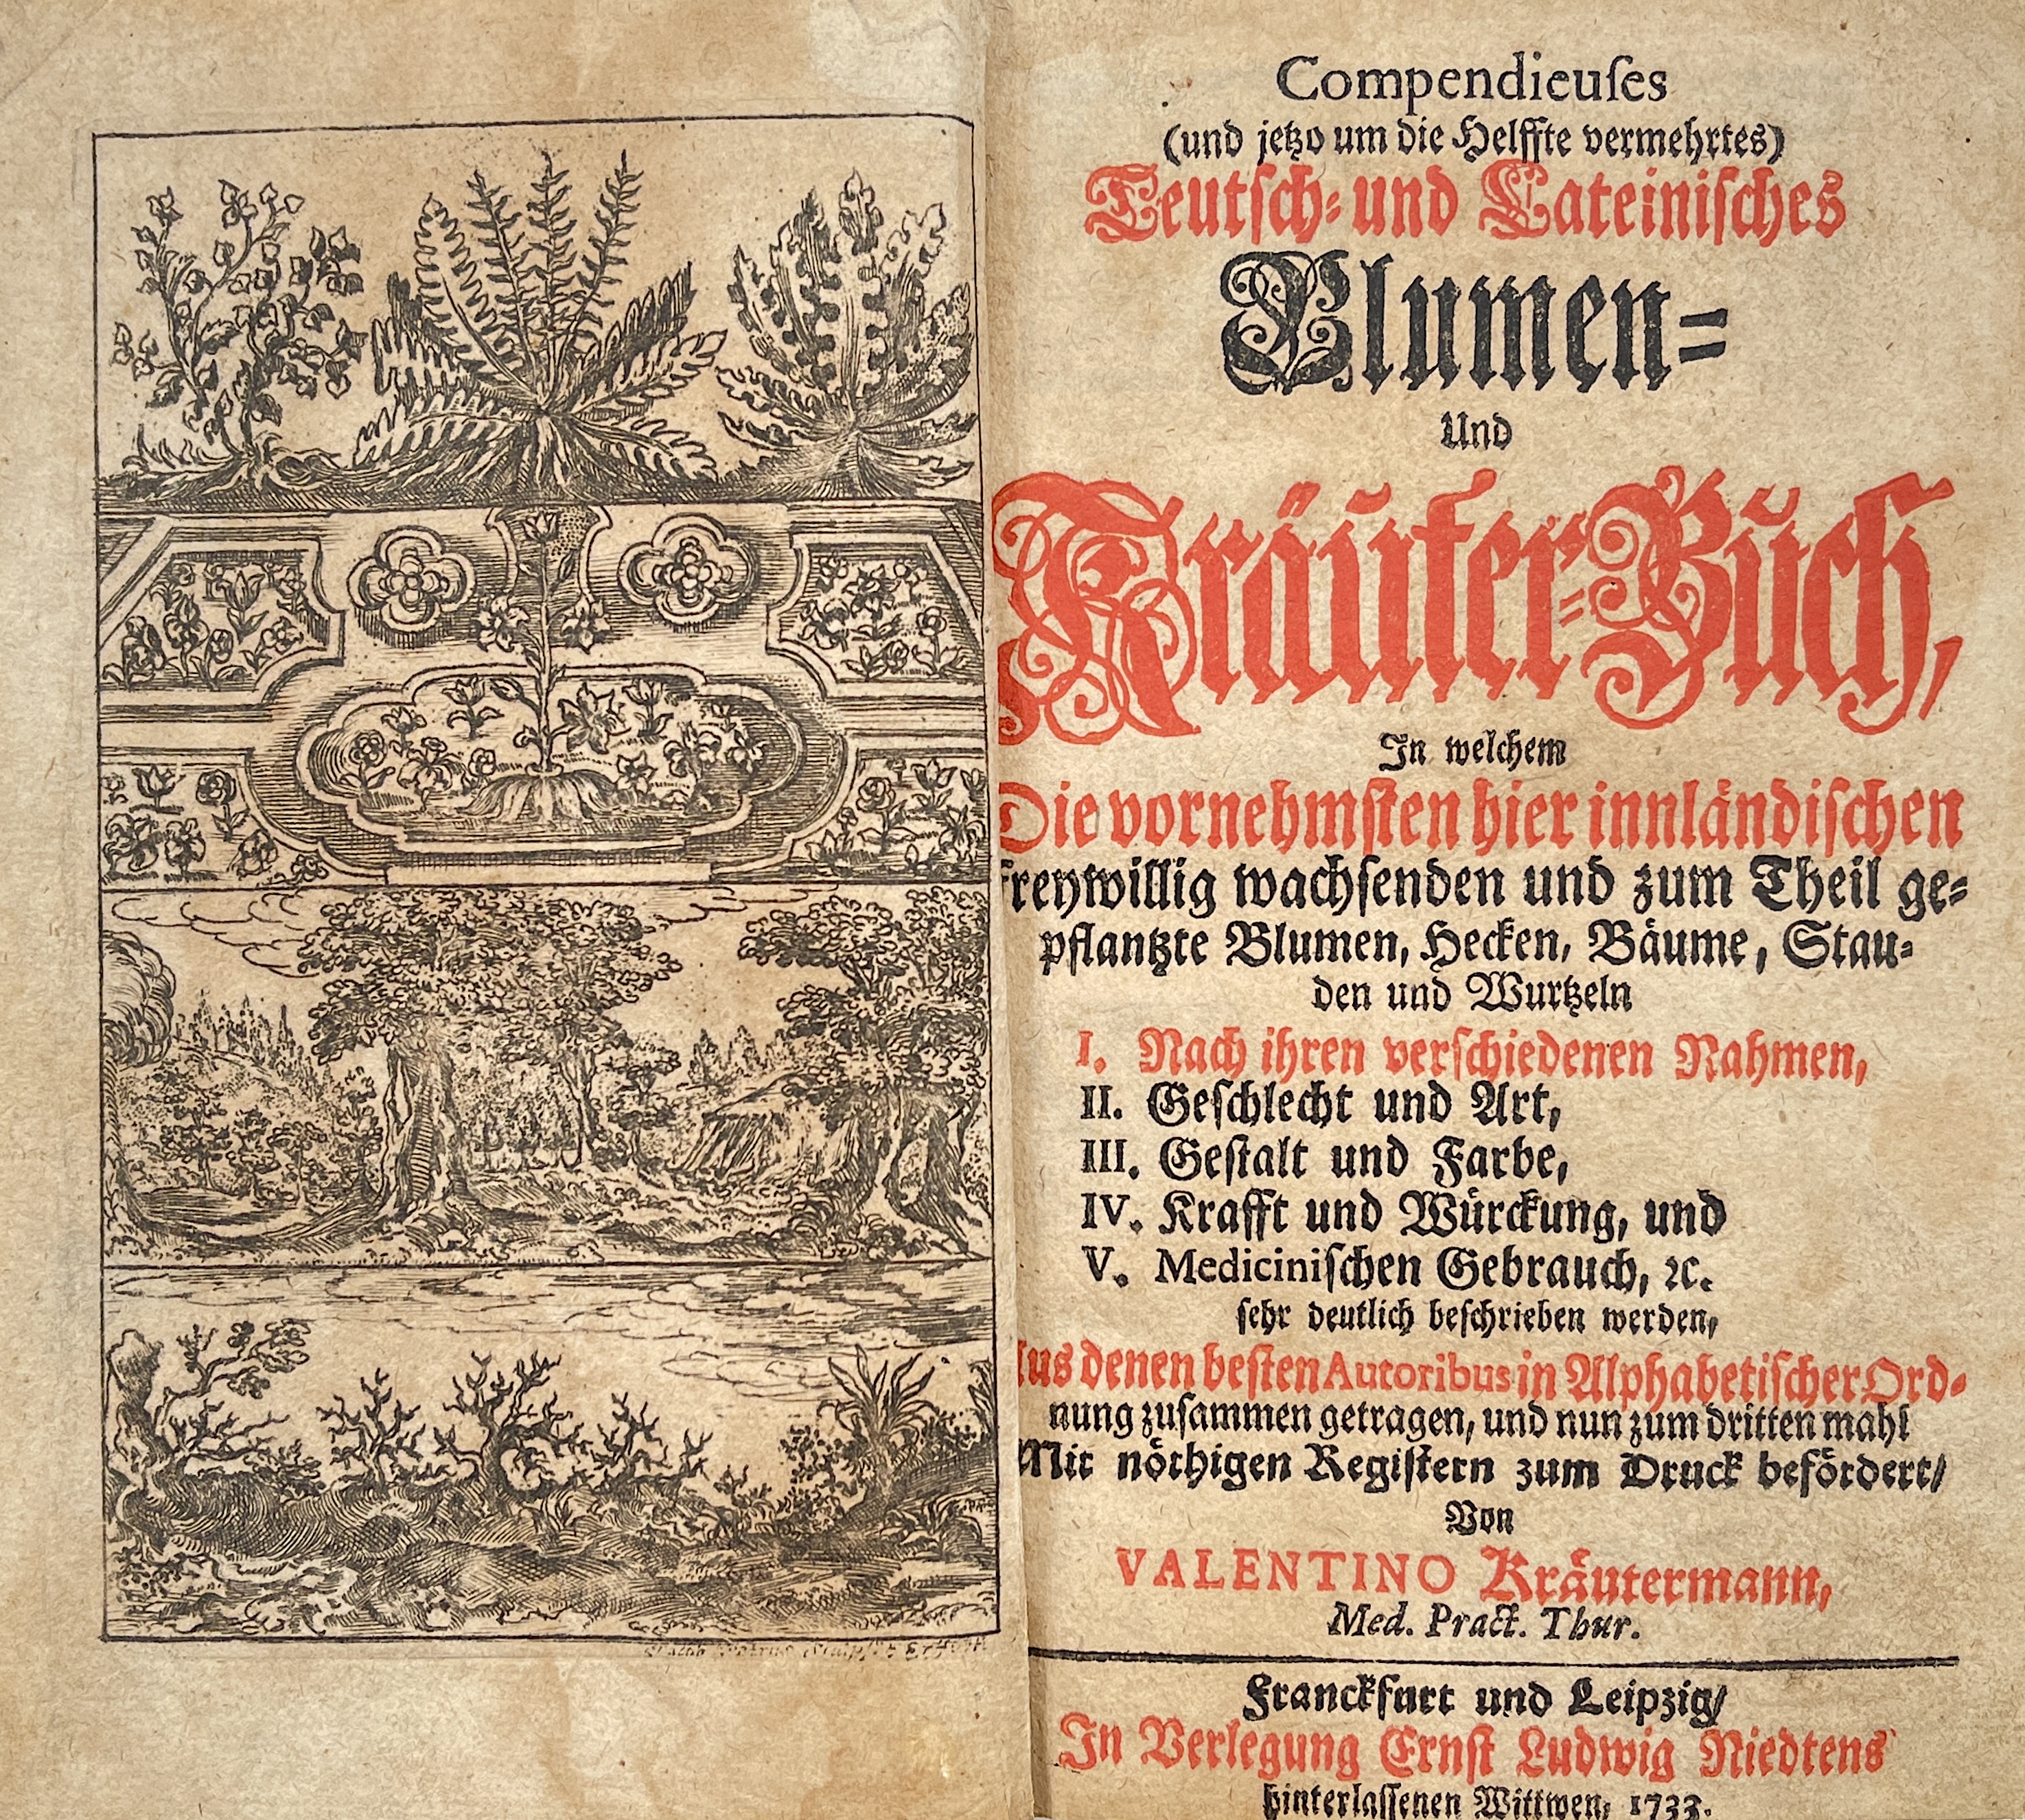 Compendieuſes
(und jetzo um die Helffte vermehrtes)
Teutſch- und Lateiniſches
Blumen-
Und
Kräuter-Buch,
In welchem
Die vornehmſten hier innländiſchen
freywillig wachſenden und zum Theil ge-
pflantzte Blumen, Hecken, Bäume, Stau-
den und Wurtzeln
I. Nach ihren verſchiedenen Nahmen,
II. Geſchlecht und Art,
III. Geſtalt und Farbe,
IV. Krafft und Würckung, und
V. Mediciniſchen Gebrauch, ꝛc.
ſehr deutlich beſchrieben werden,
Aus denen beſten Autoribus in Alphabetiſcher Ord-
nung zuſammen getragen, und nun zum dritten mahl
Mit nöthigen Regiſtern zum Druck befördert/
Von
VALENTINO Kräutermann,
Med. Pract. Thur.
Franckfurt und Leipzig/
In Verlegung Ernſt Ludwig Niedtens
hinterlaſſenen Wittwen, 1733.